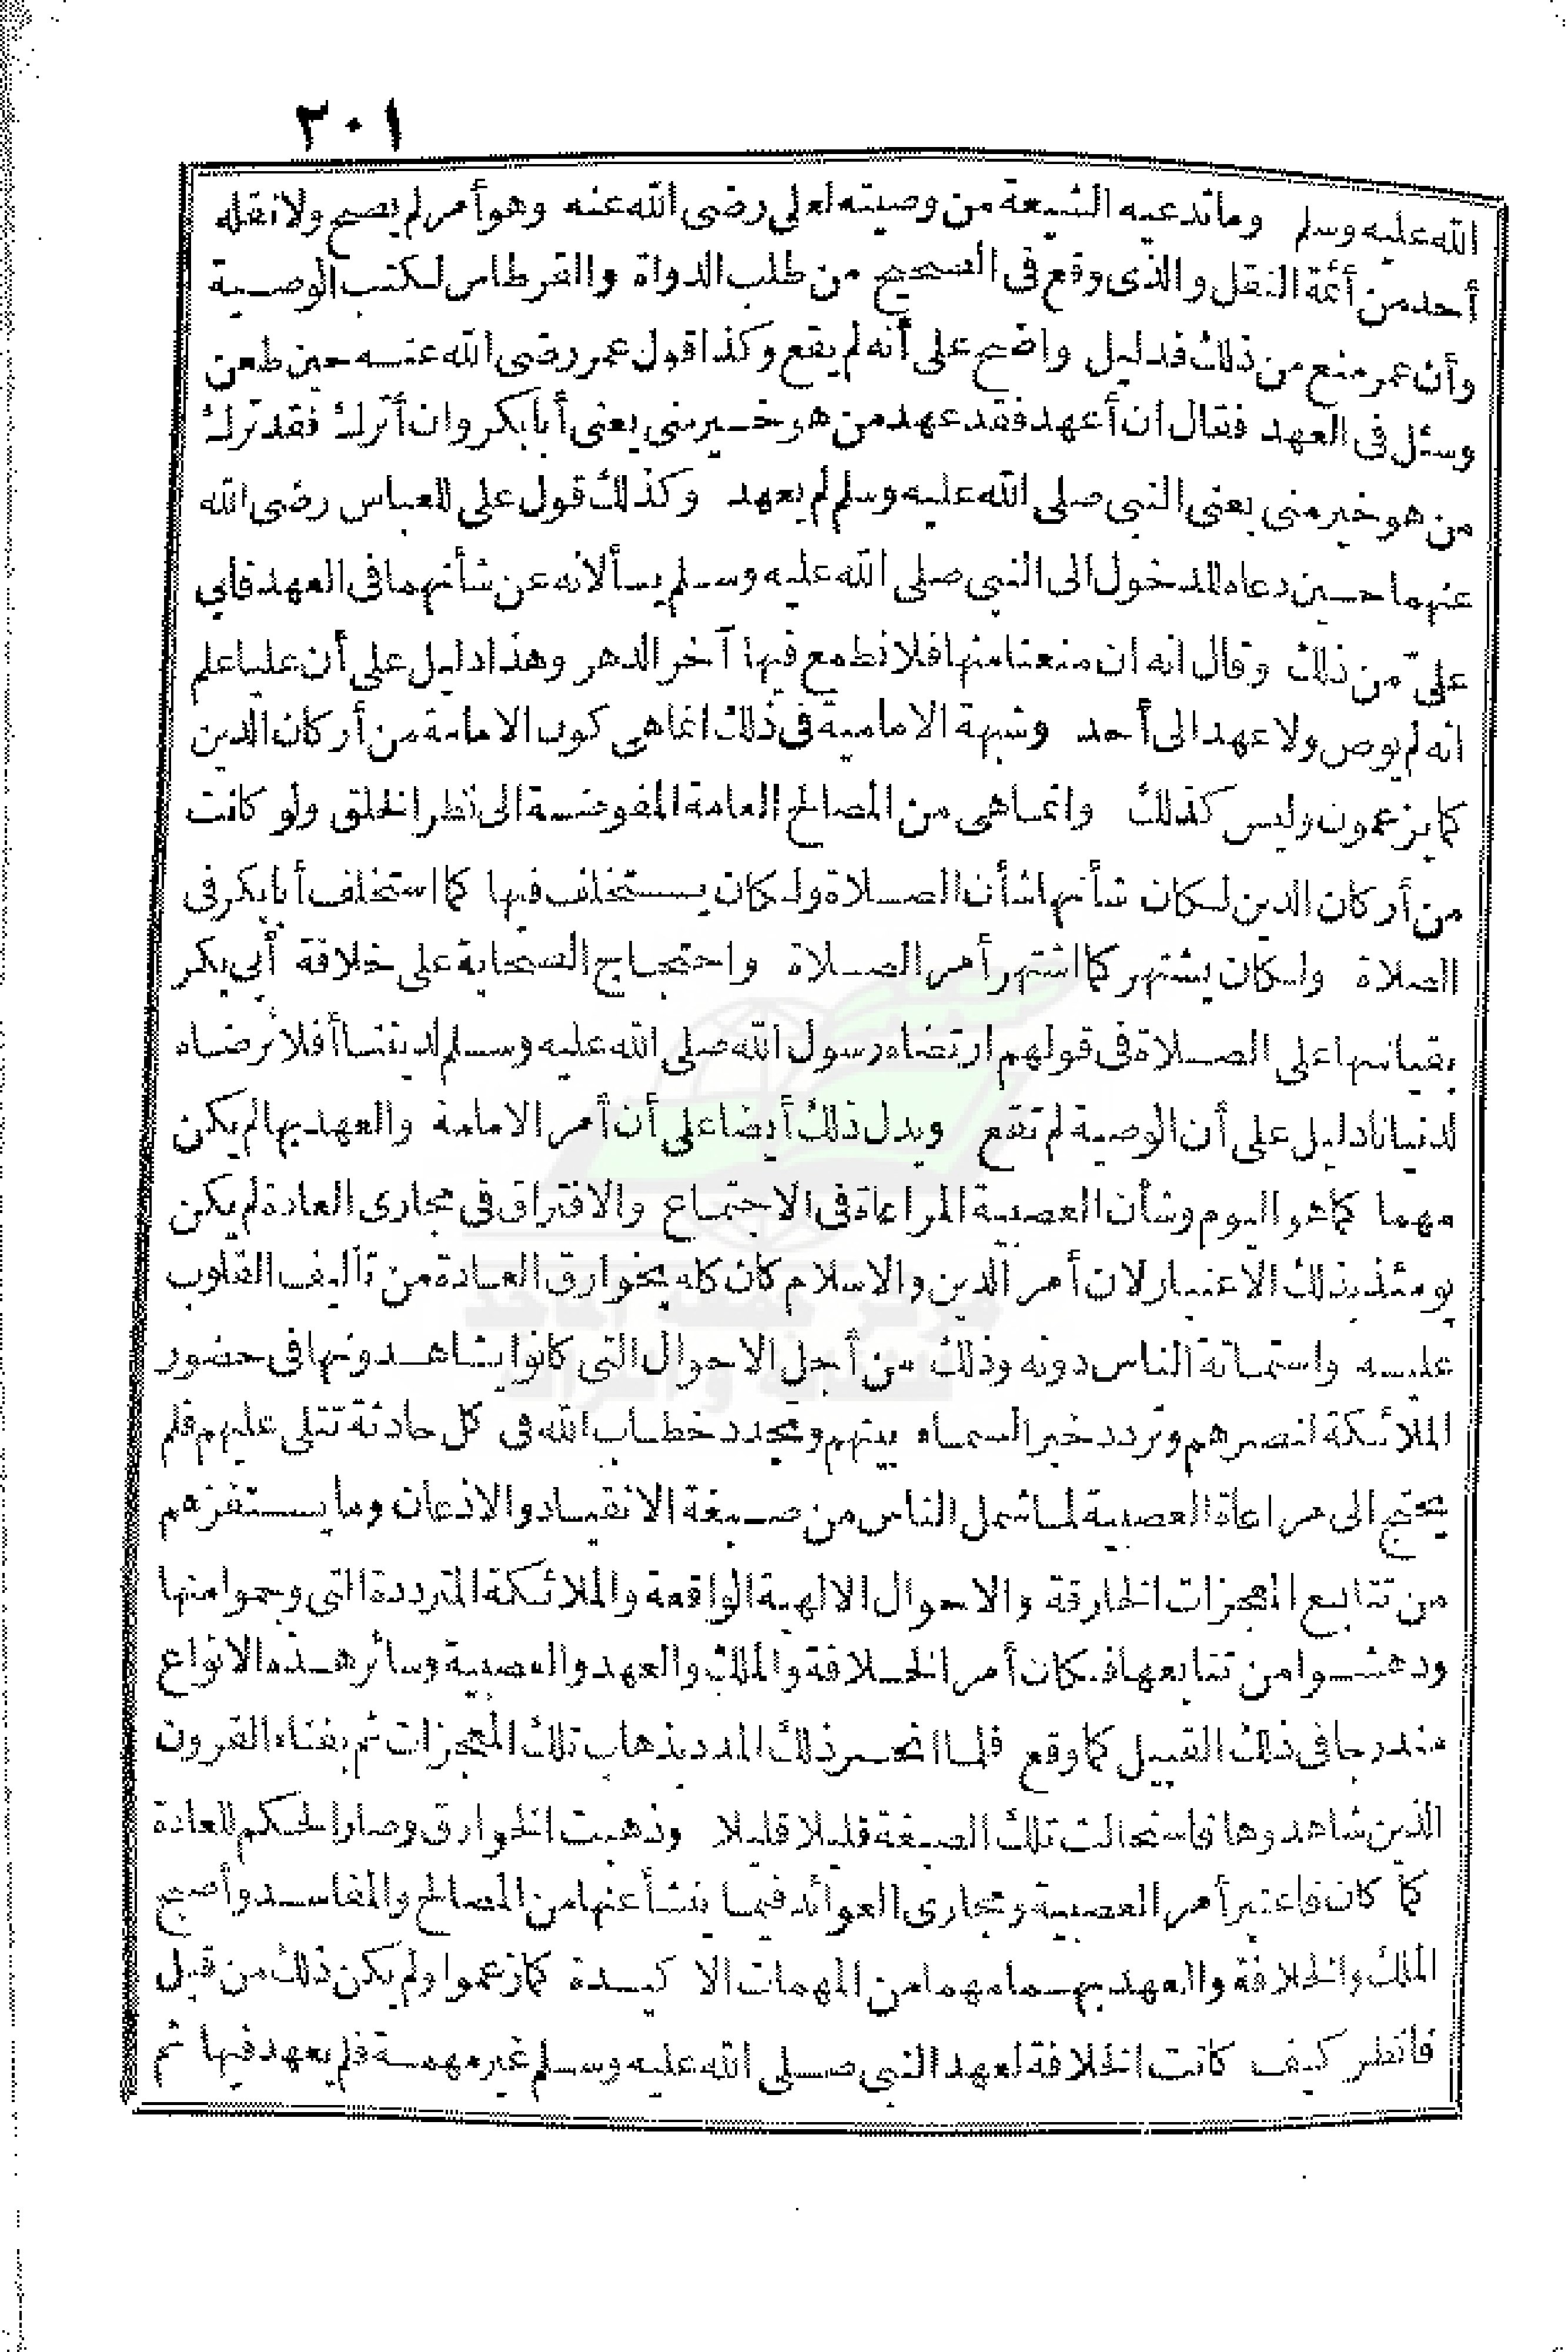 ٢٠١
الله عليه وسلم وما تدعيه الشيعة من وصيته لعلى رضى الله عنه وهو أمر لم يصح ولا نقله
أحد من أئمة النقل والذى وقع فى الصحيح من طلب الدواة والقرطاس لكتب الوصية
وأن عمر منع من ذلك فدليل واضح على أنه لم يقع وكذا قول عمر رضى الله عنه حين طعن
وسئل فى العهد فقال ان أعهد فقد عهد من هو خير منى يعنى أبا بكر وان أترك فقد ترك
من هو خير منى يعنى النبى صلى الله عليه وسلم لم يعهد وكذلك قول على للعباس رضى الله
عنهما حين دعاه للدخول الى النبى صلى الله عليه وسلم يسألانه عن شأنهما فى العهد فابى
على من ذلك وقال انه ان منعنا منها فلا نطمع فيها آخر الدهر وهذا دليل على أن عليا علم
انه لم يوص ولا عهد الى أحد وشبهة الامامية فى ذلك انما هى كون الامامة من أركان الدين
كما يزعمون وليس كذلك وانما هى من المصالح العامة المفوضة الى نظر الخلق ولو كانت
من أركان الدين لكان شأنها شأن الصلاة ولكان يستخلف فيها كما استخلف أبا بكر فى
الصلاة ولكان يشتهر كما اشتهر أمر الصلاة واحتجاج الصحابة على خلافة أبى بكر
بقياسها على الصلاة فى قولهم ارتضاه رسول الله صلى الله عليه وسلم لديننا أفلا نرضاه
لدنيانا دليل على أن الوصية لم تقع ويدل ذلك أيضا على أن أمر الامامة والعهد بها لم يكن
مهما كما هو اليوم وشأن العصبية المراعاة فى الاجتماع والافتراق فى مجارى العادة لم يكن
يومئذ بذلك الاعتبار لان أمر الدين والاسلام كان كله بخوارق العادة من تأليف القلوب
عليه واستماتة الناس دونه وذلك من أجل الاحوال التى كانوا يشاهدونها فى حضور
الملائكة لنصرهم وتردد خبر السماء بينهم وتجدد خطاب الله فى كل حادثة تتلى عليهم فلم
يحتج الى مراعاة العصبية لما شمل الناس من صبغة الانقياد والاذعان وما يستفزهم
من تتابع المعجزات الخارقة والاحوال الالهية الواقعة والملائكة المترددة التى وجموا منها
ودهشوا من تتابعها فكان أمر الخلافة والملك والعهد والعصبية وسائر هذه الانواع
مندرجا فى ذلك القبيل كما وقع فلما انحسر ذلك المدد بذهاب تلك المعجزات ثم بفناء القرون
الذين شاهدوها فاستحالت تلك الصبغة قليلا قليلا وذهبت الخوارق وصار الحكم للعادة
كما كان فاعتبر أمر العصبية ومجارى العوائد فيما ينشأ عنها من المصالح والمفاسد وأصبح
الملك والخلافة والعهد بهما مهما من المهمات الا كيدة كما زعموا ولم يكن ذلك من قبل
فانظر كيف كانت الخلافة لعهد النبى صلى الله عليه وسلم غير مهمة فلم يعهد فيها ثم